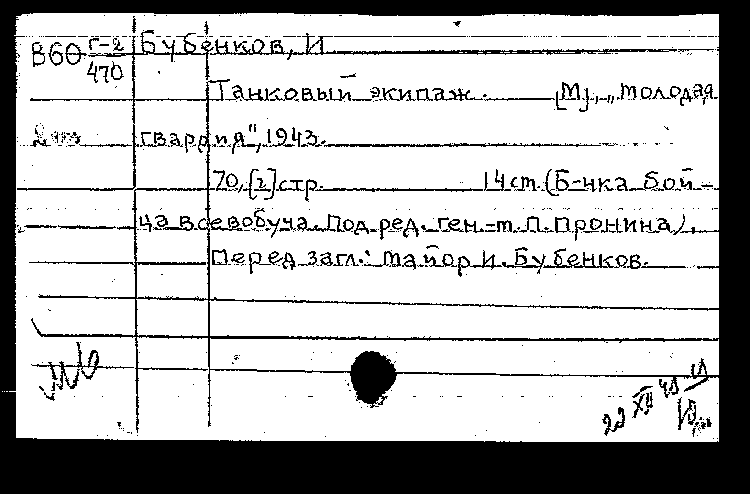 В60 Г-2 Бубенков, И
470
Танковый экипаж. [М], „Молодая
2 экз гвардия", 1943.
70,[2]стр. 14см.(Б-чка бой-
ца всевобуча. Под ред. ген.-м. П. Пронина).
Перед загл.: майор И. Бубенков.
22 XII 43